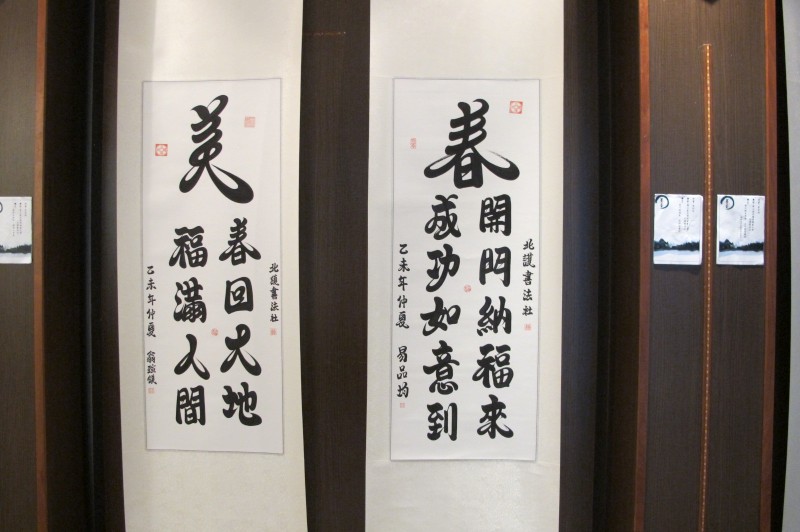 春
北護書法社
開門納福來
成功如意到
乙未年仲夏 易品均
美
北護書法社
春回大地
福滿人間
乙未年仲夏